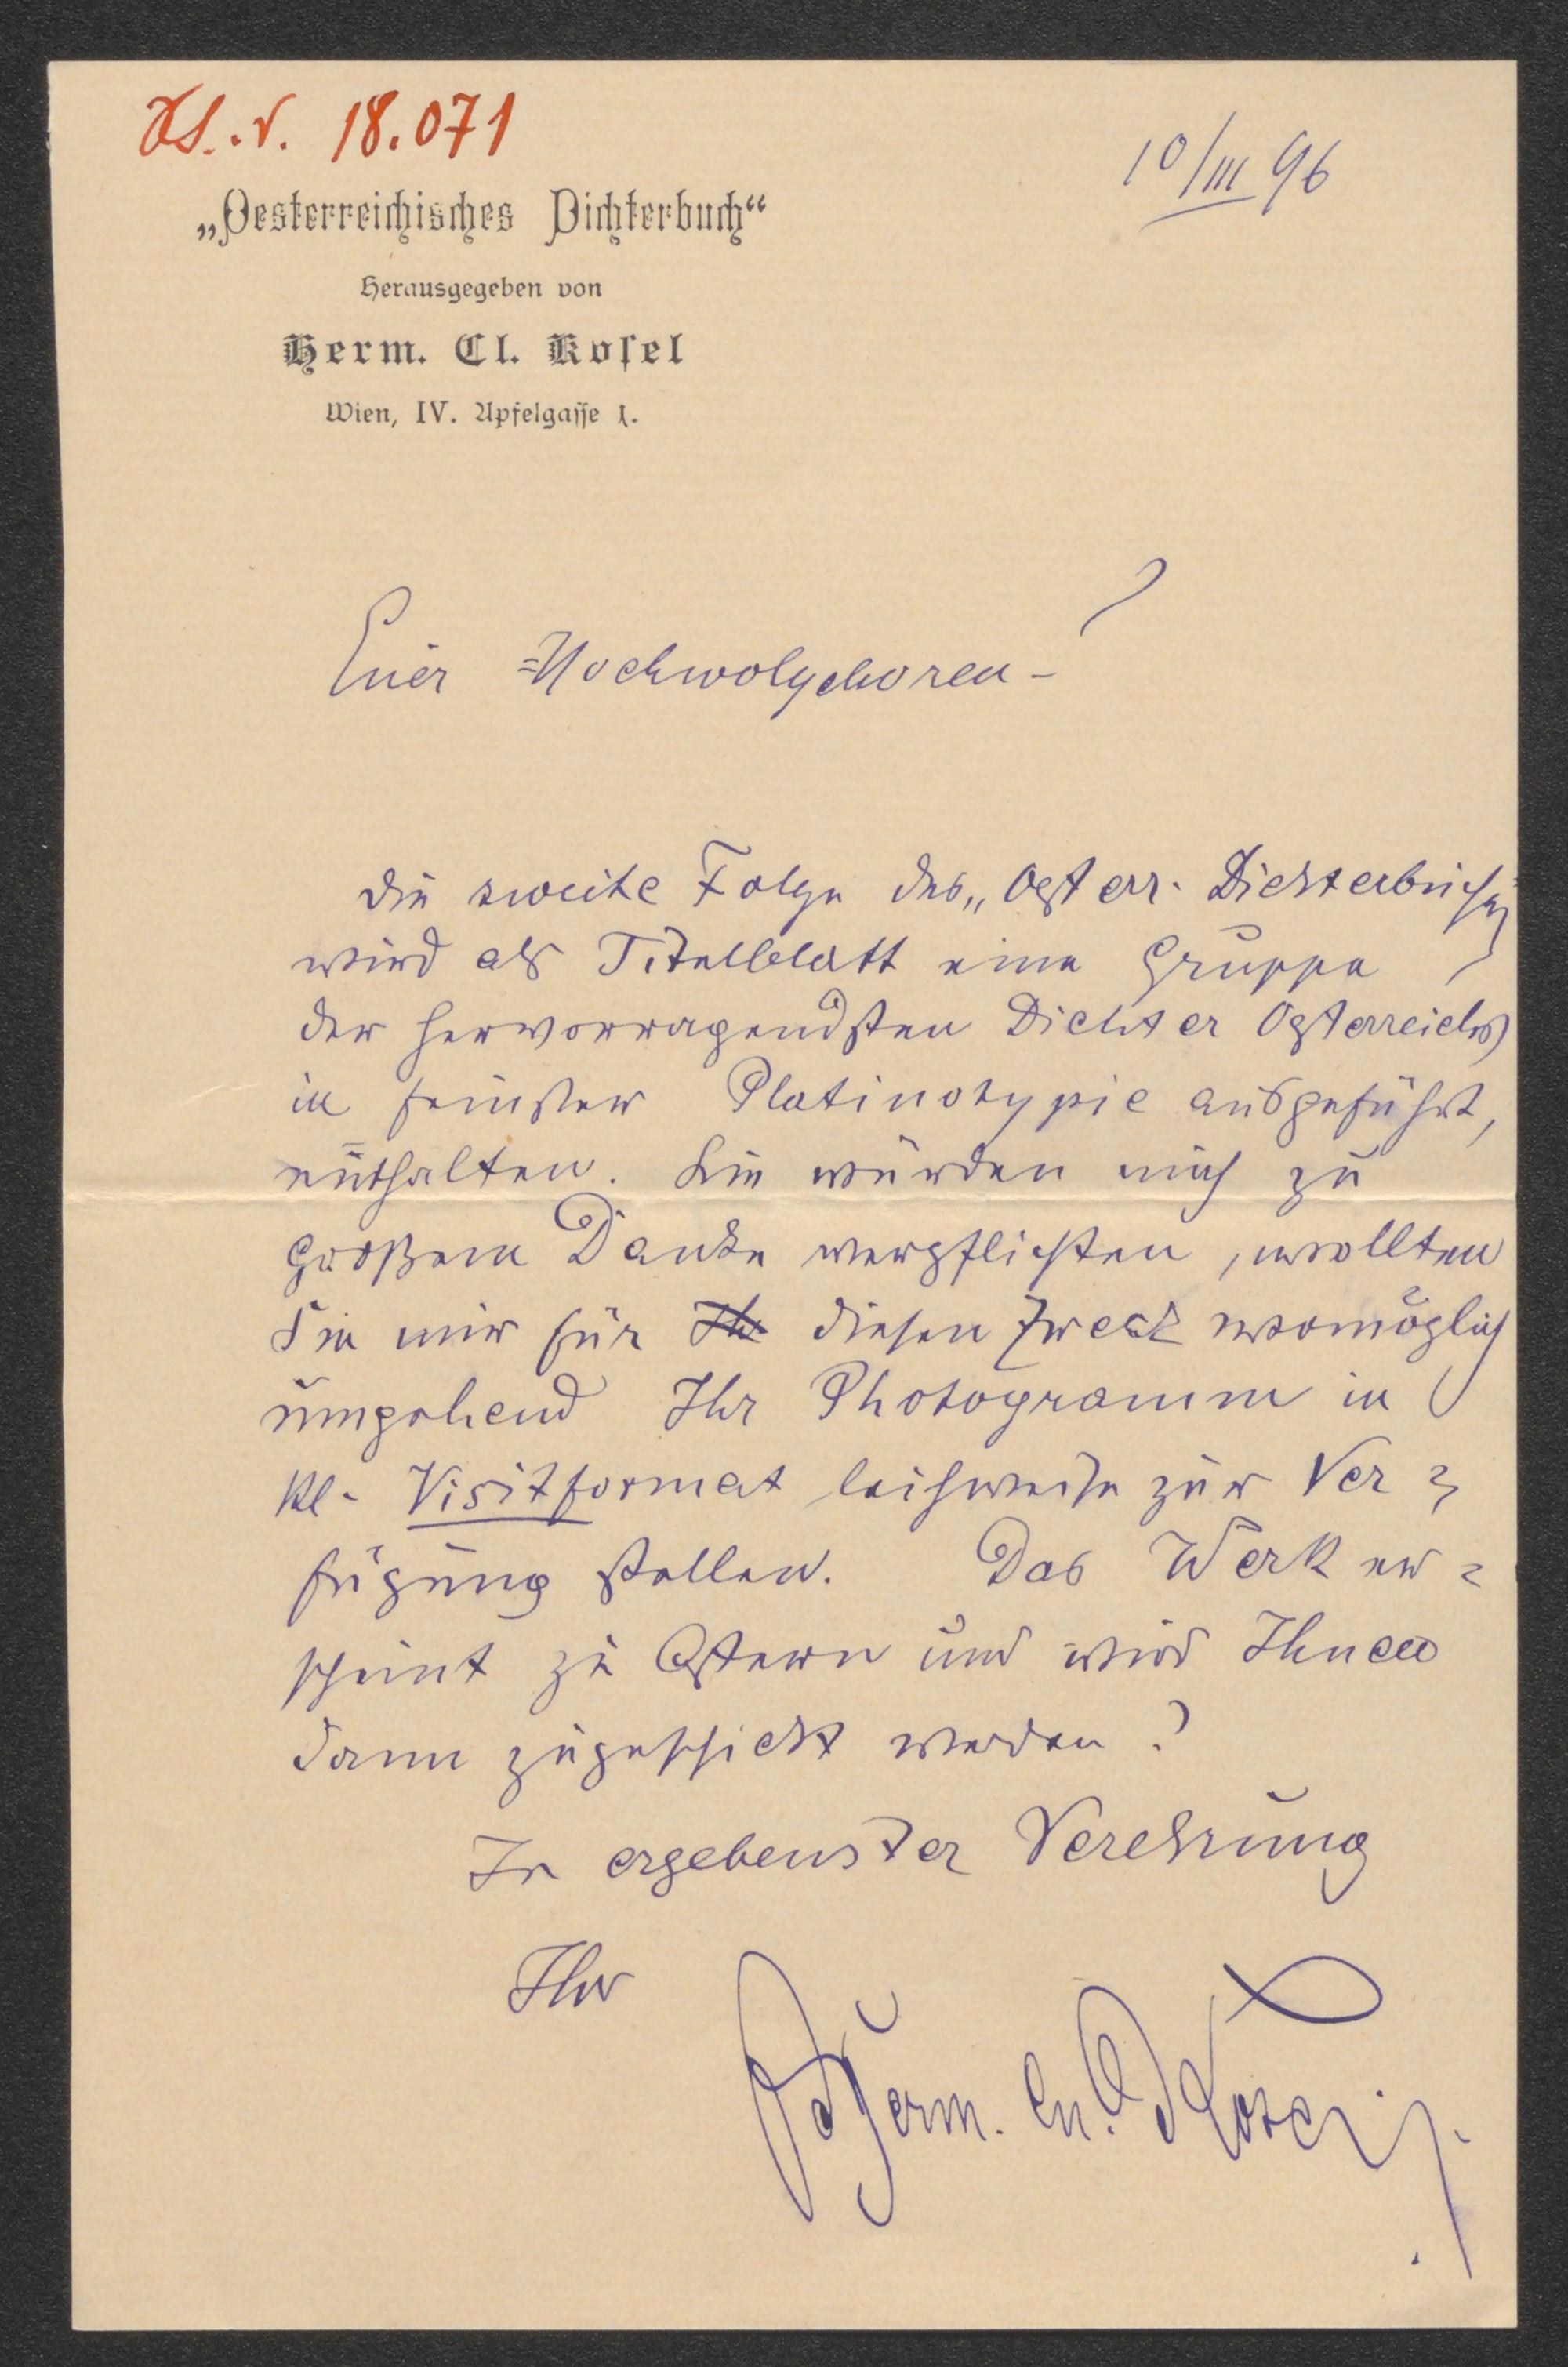 Hs. N. 18.071
10/III 96
„Oesterreichisches Dichterbuch“
Herausgegeben von
Herm. Cl. Kosel
Wien, IV. Apfelgasse 1.
Euer Hochwolgeboren
die zweite Folge des „Oesterr. Dichterbuches
wird als Titelblatt eine Gruppe
der hervorragendsten Dichter Oesterreichs
in feinster Platinotypie ausgeführt,
enthalten. Sie würden mich zu
großem Danke verpflichten, wollten
Sie mir für diesen Zweck womöglich
umgehend Ihr Photogramm in
kl. Visitformat leihweise zur Ver=
fügung stellen. Das Werk er=
scheint zu Ostern und wird Ihnen
dann zugeschickt werden!
In ergebenster Verehrung
Ihr
Herm. Cl. Kosel